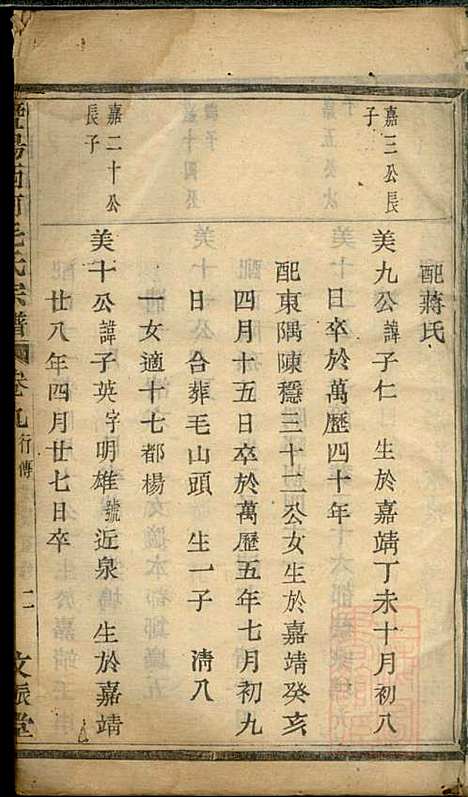 配蔣氏
嘉三公長
子
美九公諱子仁 生於嘉靖丁未十月初八
日卒於萬歷四十年
配東隅陳穩三十二公女生於嘉靖癸亥
四月十五日卒於萬歷五年七月初九
日 合葬毛山頭 生一子 淸八
一女適十七都楊
嘉二十公
長子
美十公諱子英字明雄號近泉 生於嘉靖
廿八年四月廿七日卒
毛氏宗譜 卷九 行傳